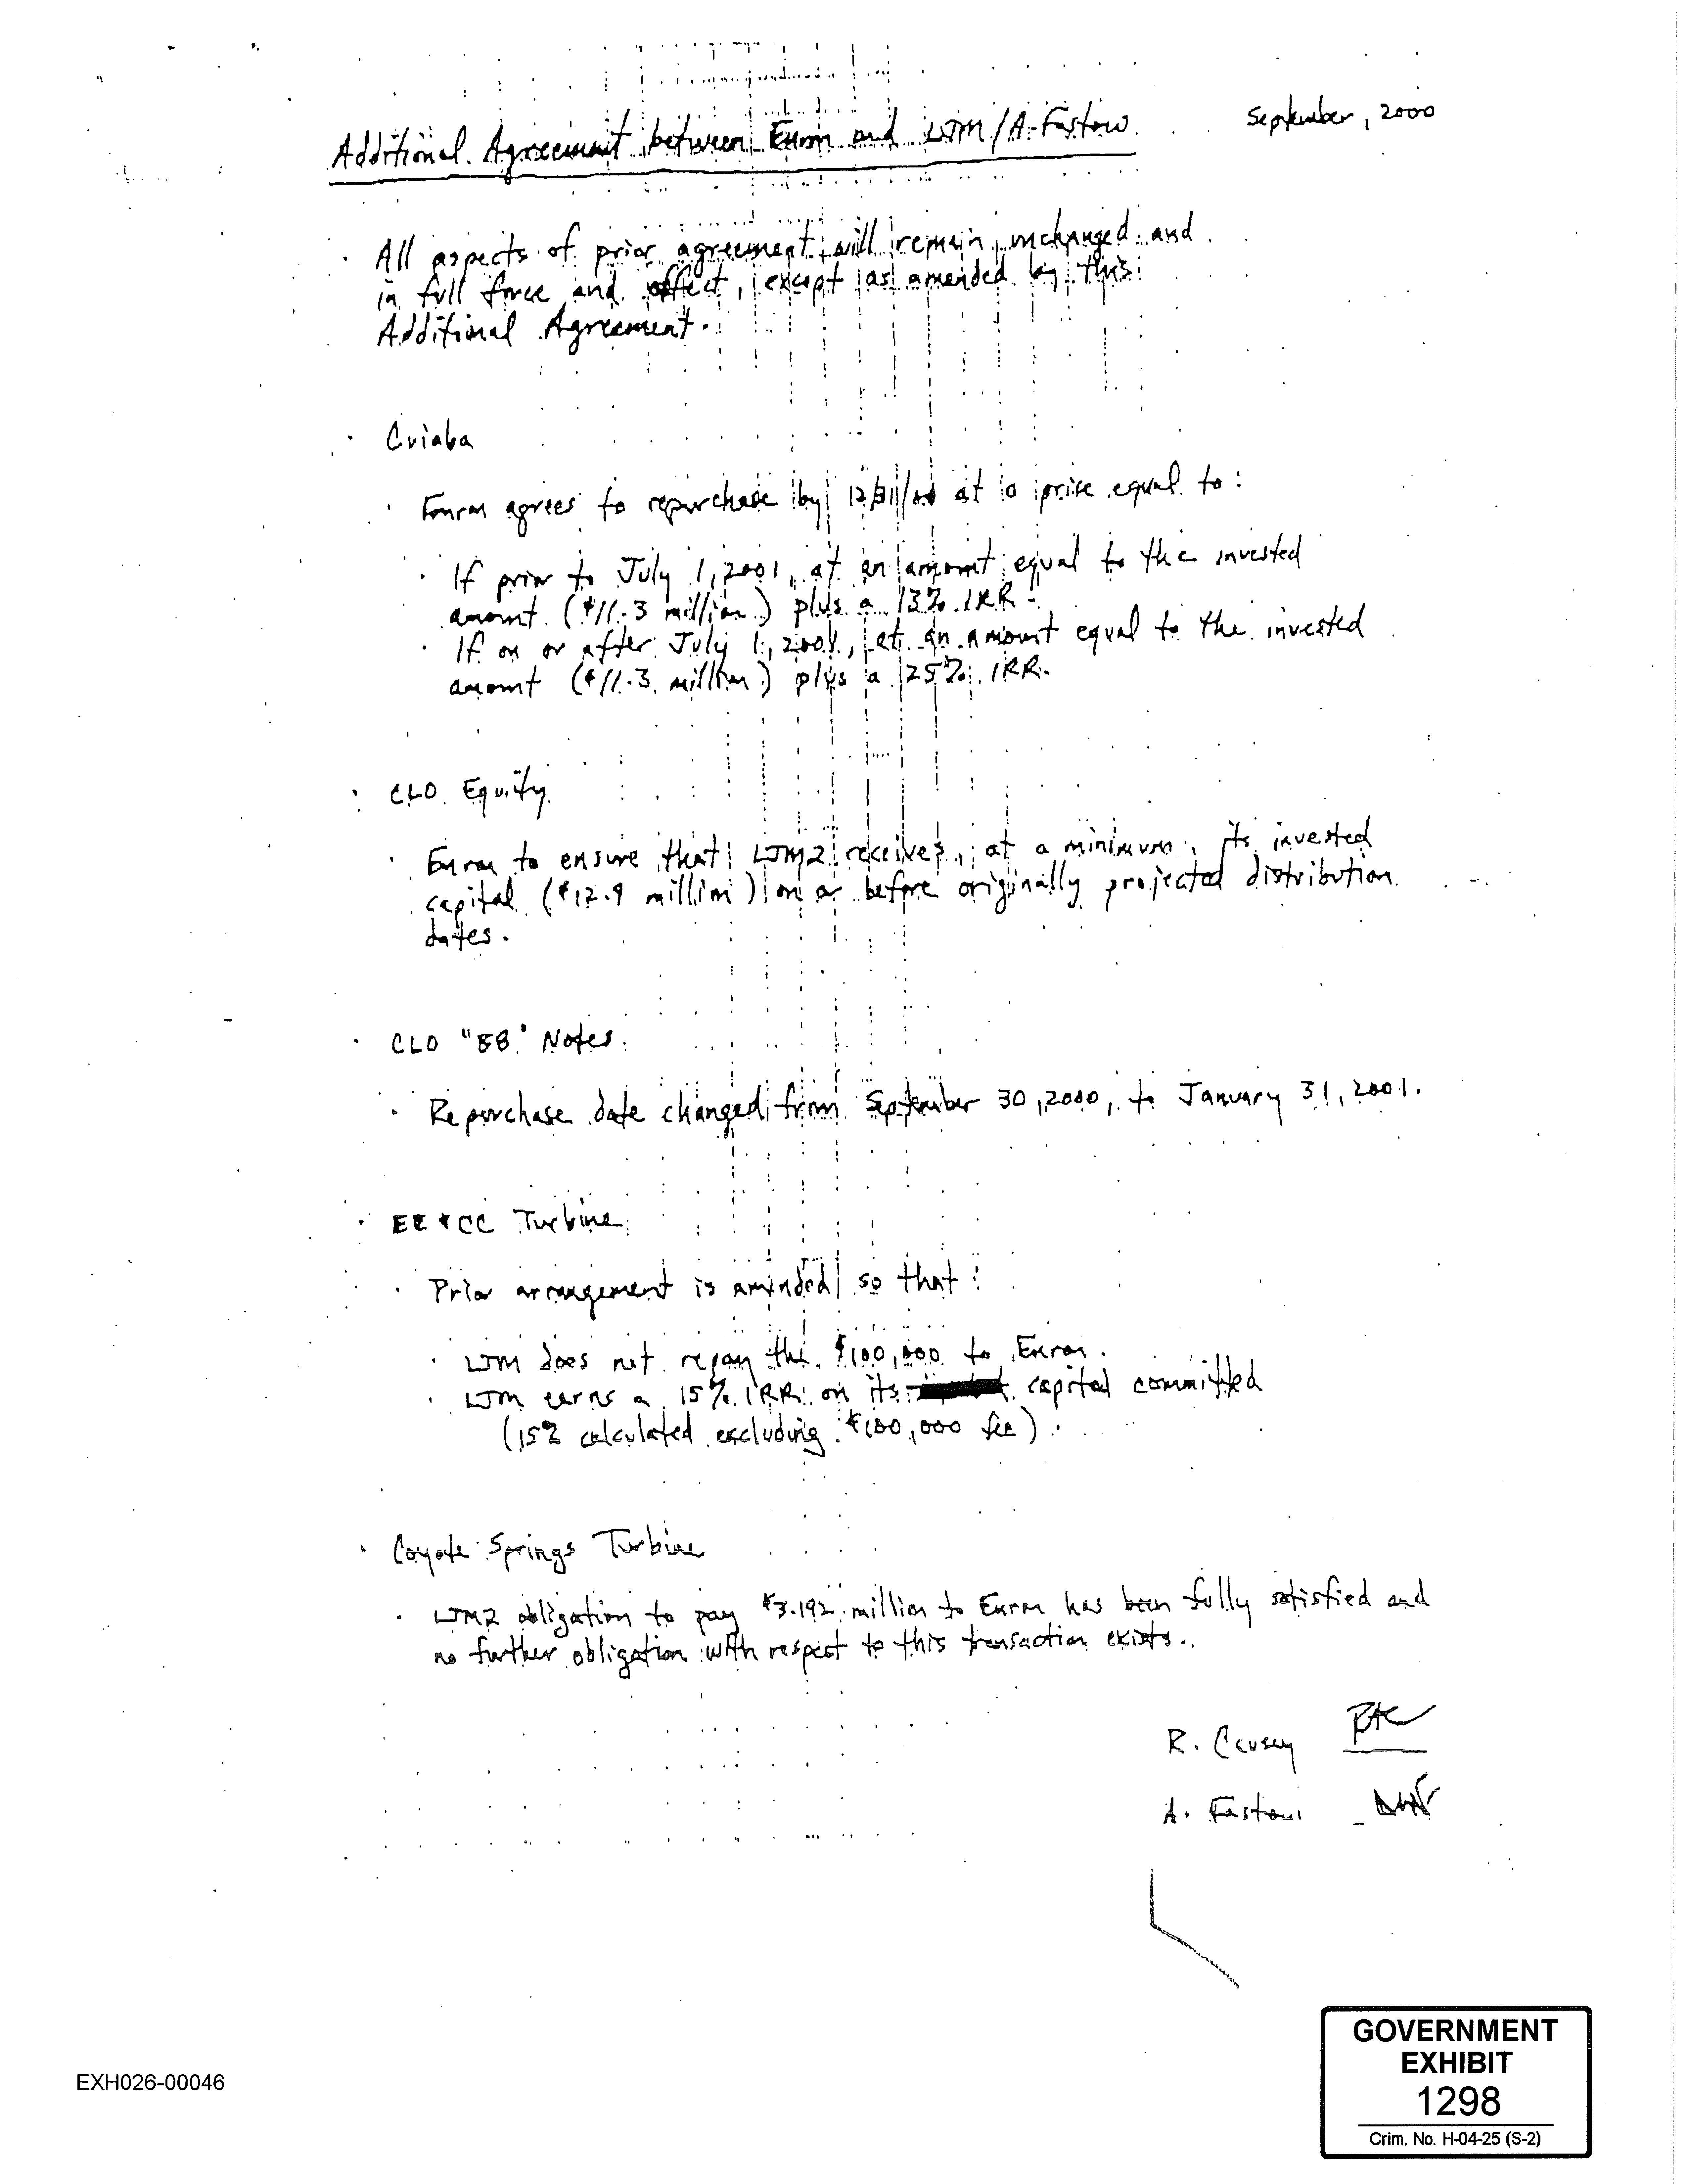 Additional Agreement between Enron and LJM/A. Fastow
September, 2000
· All aspects of prior agreement will remain unchanged and
in full force and effect, except as amended by this
Additional Agreement.
· Cuiaba
· Enron agrees to repurchase by at a price equal to:
· If prior to July 1, 2001, at an amount equal to the invested
amount ($11.3 million) plus a 13% IRR.
· If on or after July 1, 2001, at an amount equal to the invested
amount ($11.3 million) plus a 25% IRR.
· CLO Equity
· Enron to ensure that LJM2 receives, at a minimum, its invested
capital ($12.9 million) on or before originally projected distribution
dates.
· CLO "BB" Notes
· Repurchase date changed from September 30, 2000, to January 31, 2001.
· EE&CC Turbine
· Prior arrangement is aminded so that:
· LJM does not repay the $100,000 to Enron.
· LJM earns a 15% IRR on its capital committed
(15% calculated excluding $100,000 fee).
· Coyote Springs Turbine
· LJM2 obligation to pay $3.192 million to Enron has been fully satisfied and
no further obligation with respect to this transaction exists.
R. Causey RAC
A. Fastow
EXH026-00046
GOVERNMENT
EXHIBIT
1298
Crim. No. H-04-25 (S-2)